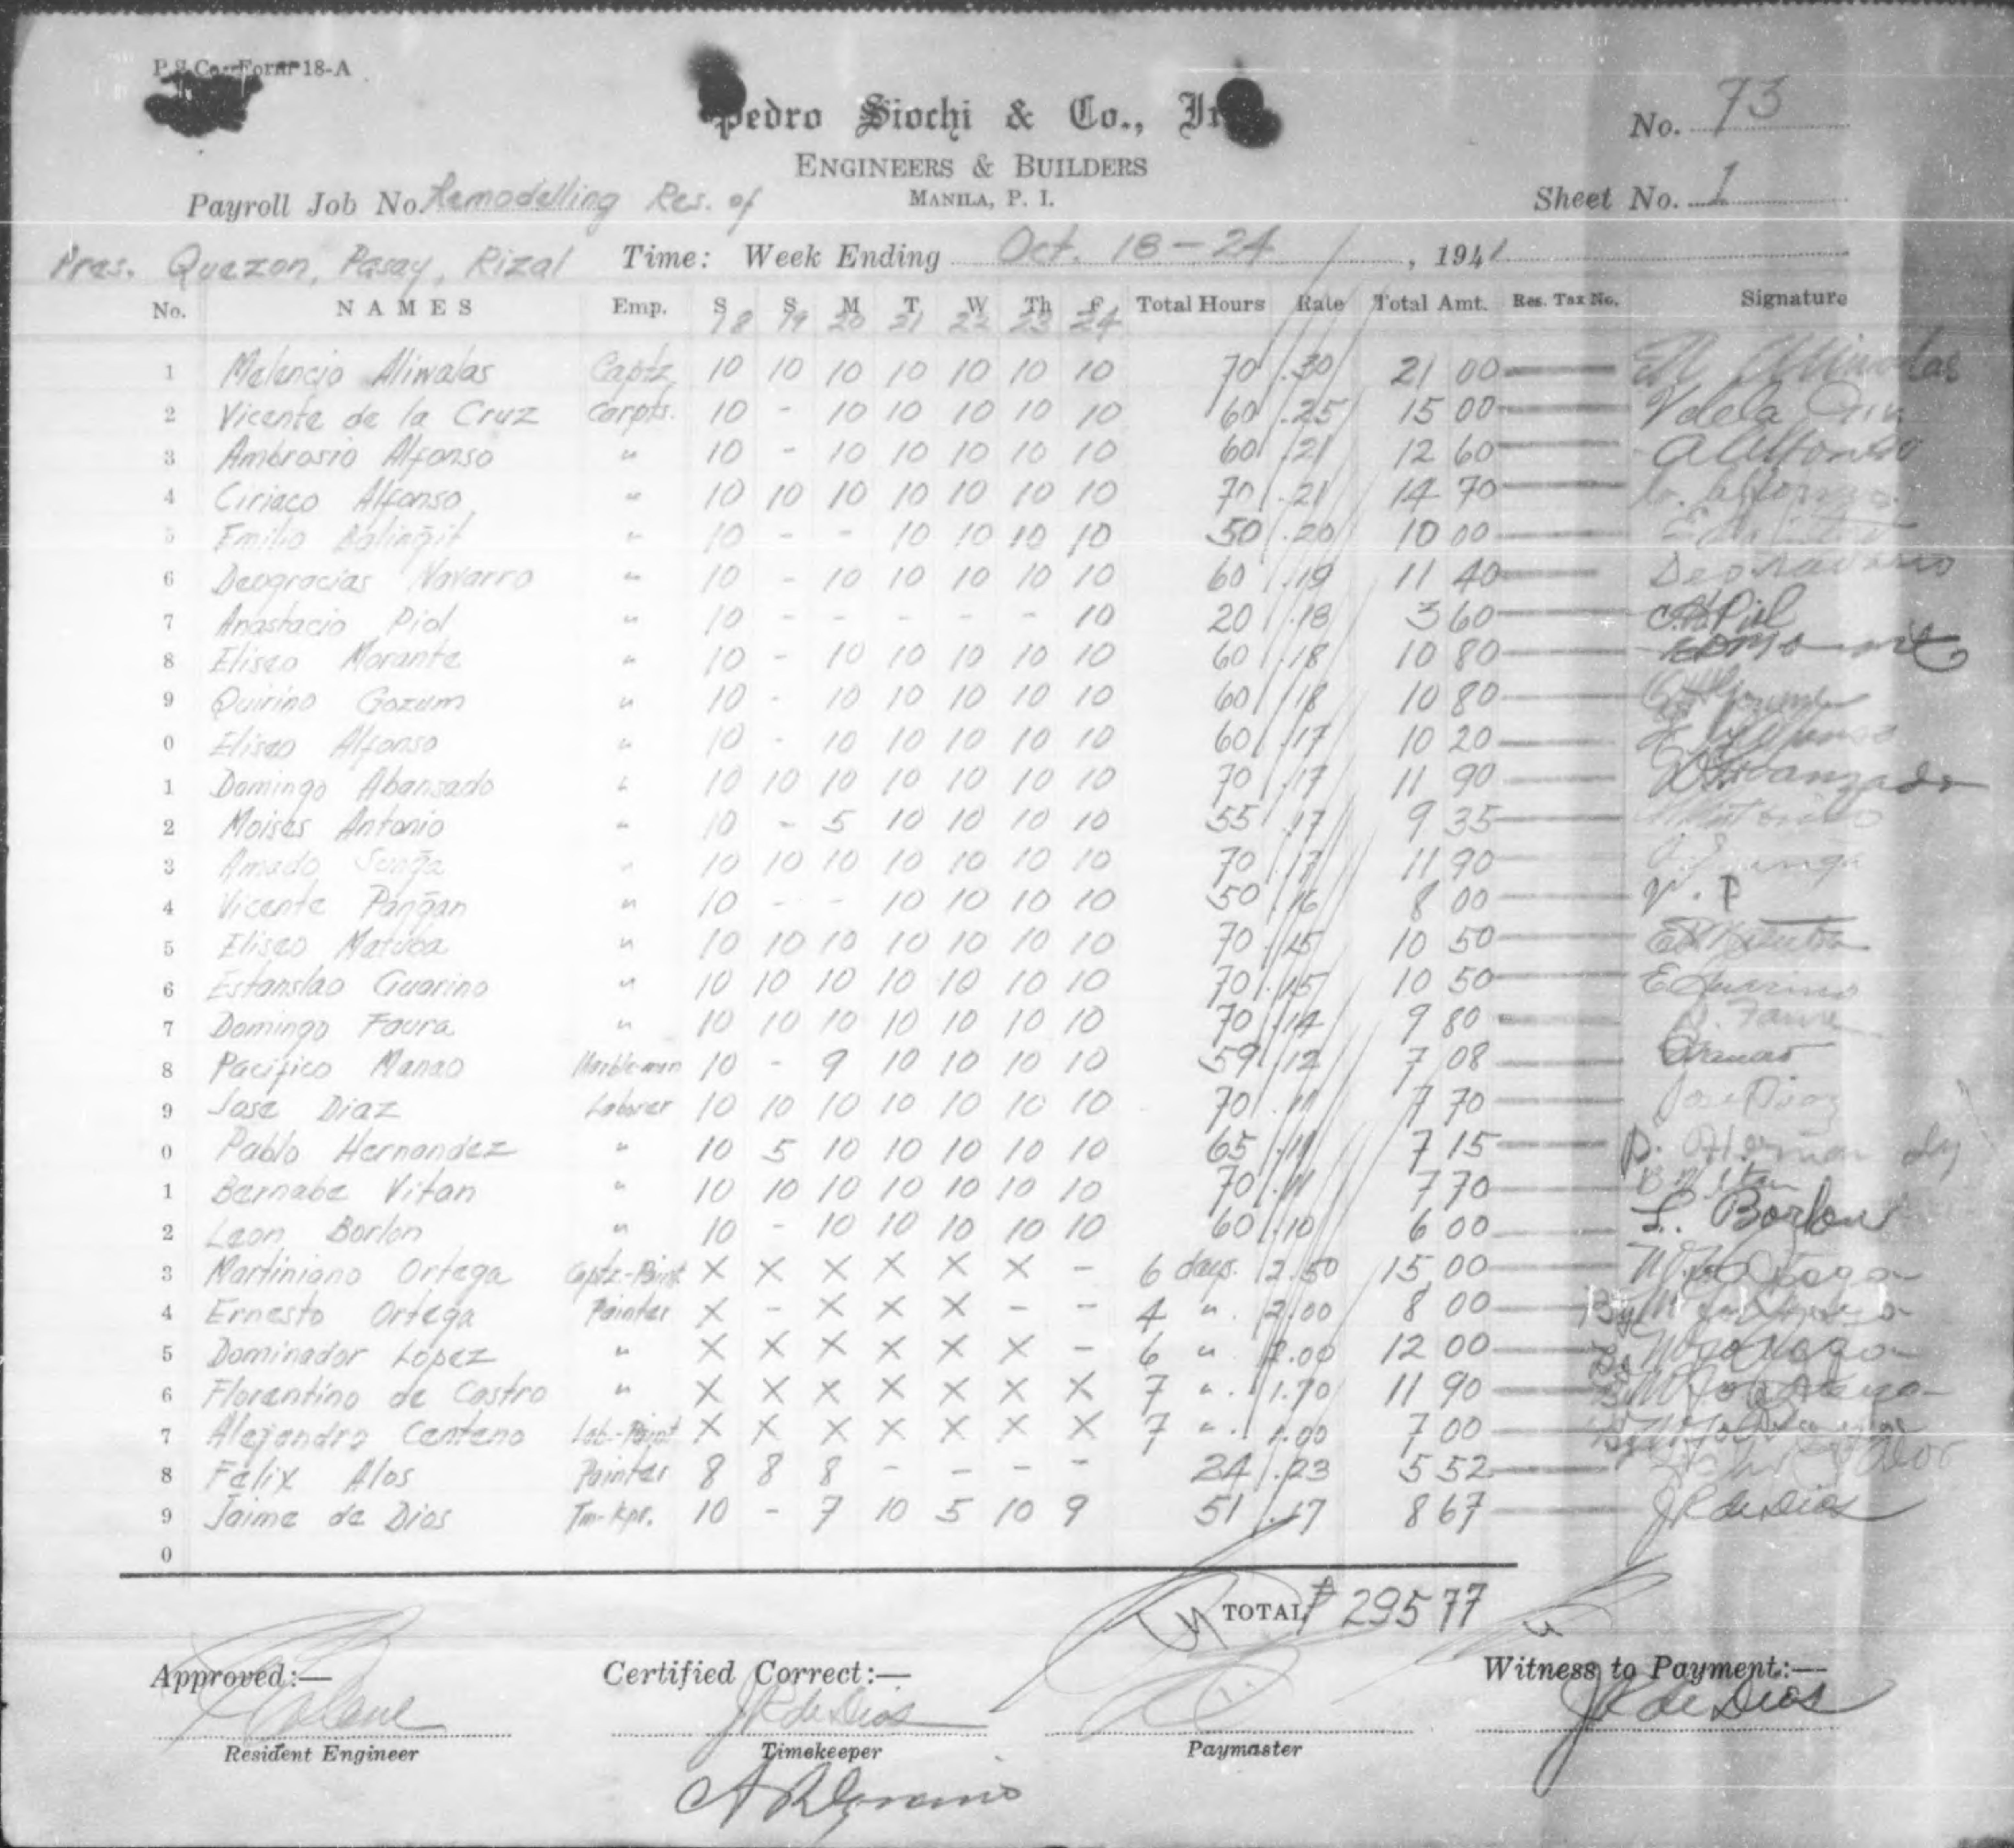 P.S.Co.—Form 18-A
Pedro Siochi & Co.,
No. 73
ENGINEERS & BUILDERS
MANILA, P. I.
Payroll Job No. Remodelling Res. of
Sheet No. 1
Pres. Quezon, Pasay, Rizal Time: Week Ending Oct. 18-24, 1941
No. NAMES Emp. S S M T W Th F Total Hours Rate Total Amt. Res. Tax No. Signature
18 19 20 21 22 23 24
1 Melencio Aliwalas Captz. 10 10 10 10 10 10 10 70 .30 21 00
2 Vicente de la Cruz Carpts. 10 - 10 10 10 10 10 60 .25 15 00 V de la Cruz
3 Ambrosio Alfonso " 10 - 10 10 10 10 10 60 .21 12 60 A Alfonso
4 Ciriaco Alfonso " 10 10 10 10 10 10 10 70 .21 14 70 C. Alfonso
5 Emilio Balingit " 10 - - 10 10 10 10 50 .20 10 00
6 Deogracias Navarro " 10 - 10 10 10 10 10 60 .19 11 40 Deo Navarro
7 Anastacio Piol " 10 - - - - - 10 20 .18 3 60
8 Eliseo Morante " 10 - 10 10 10 10 10 60 .18 10 80
9 Quirino Gozum " 10 - 10 10 10 10 10 60 .18 10 80
0 Eliseo Alfonso " 10 - 10 10 10 10 10 60 .17 10 20 E. Alfonso
1 Domingo Abansado " 10 10 10 10 10 10 10 70 .17 11 90
2 Moises Antonio " 10 - 5 10 10 10 10 55 .17 9 35
3 Amado Sunga " 10 10 10 10 10 10 10 70 .17 11 90
4 Vicente Pangan " 10 - - 10 10 10 10 50 .16 8 00 V. P
5 Eliseo Matuba " 10 10 10 10 10 10 10 70 .15 10 50
6 Estanslao Guarino " 10 10 10 10 10 10 10 70 .15 10 50
7 Domingo Faura " 10 10 10 10 10 10 10 70 .14 9 80
8 Pacifico Manao Marble-man 10 - 9 10 10 10 10 59 .12 7 08
9 Jose Diaz Laborer 10 10 10 10 10 10 10 70 .11 7 70 Jose Diaz
0 Pablo Hernandez " 10 5 10 10 10 10 10 65 .11 7 15
1 Bernabe Vitan " 10 10 10 10 10 10 10 70 .11 7 70 B Vitan
2 Leon Borlon " 10 - 10 10 10 10 10 60 .10 6 00 L. Borlon
3 Martiniano Ortega Captz.-Paint. X X X X X X - 6 days. 2.50 15 00
4 Ernesto Ortega Painter X - X X X - - 4 " 2.00 8 00
5 Dominador Lopez " X X X X X X - 6 " 2.00 12 00
6 Florentino de Castro " X X X X X X X 7 " 1.70 11 90
7 Alejandro Centeno Lab.-Paint X X X X X X X 7 " 1.00 7 00
8 Felix Alos Painter 8 8 8 - - - - 24 .23 5 52
9 Jaime de Dios Tm-Kpr. 10 - 7 10 5 10 9 51 .17 8 67 J R de Dios
0
TOTAL ₱ 295 77
Approved:— Certified Correct:— Witness to Payment:—
J R de Dios J R de Dios
Resident Engineer Timekeeper Paymaster